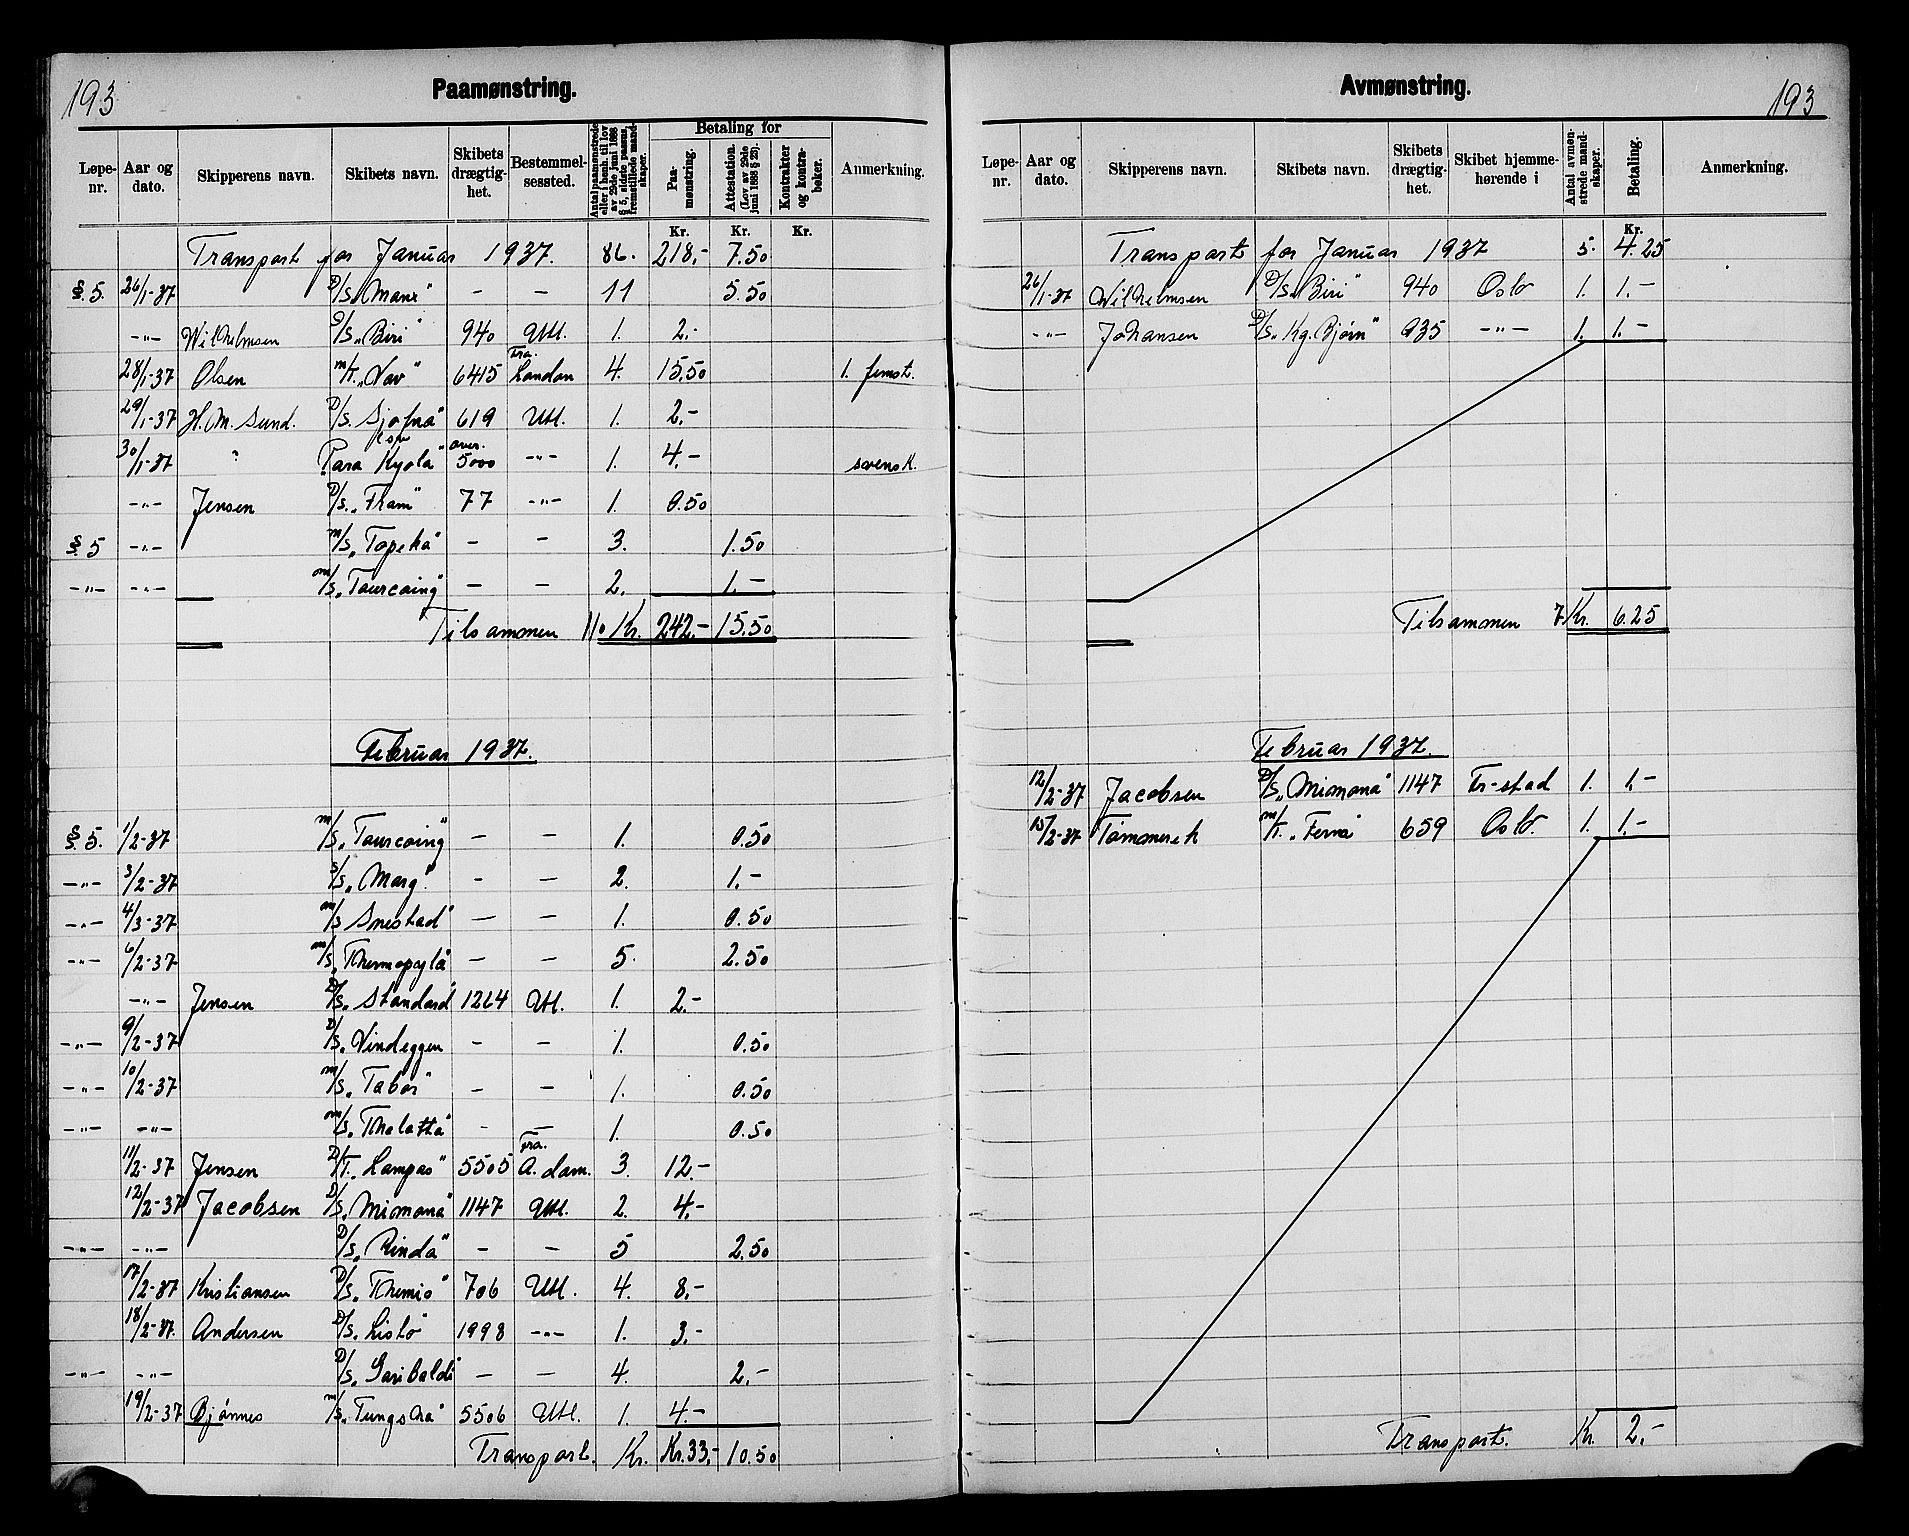 193
Paamønstring.
Løpe-nr. Aar og dato. Skipperens navn. Skibets navn. Skibets drægtig-het. Bestemmel-sessted. Antal paamønstrede eller i henh. til lov av 29de juni 1888 § 5, sidste passus, fremstillede mand-skaper. Betaling for Paa-mønstring. Attestation. (Lov av 29de juni 1888 § 23). Kontrakter og kontra-bøker. Anmerkning.
Kr. Kr. Kr.
Transport for Januar 1937. 86. 218,- 7.50
§. 5. 26/1-37 D/S. „Mane" - - 11 5.50
-"- Wilhelmsen D/S. „Biri" 940 Utl. 1. 2,-
28/1-37 Olsen m/t. „Nav" 6415 Fra. London 4. 15,50 1. fremst.
29/1-37 H. M. Sund. D/S. Sjofna" 619 Utl. 1. 2,-
30/1-37 " „Para Kyola" over. 5000 -"- 1. 4,- svensk.
-"- Jensen D/S. „Fram" 77 -"- 1. 0.50
§. 5 -"- m/S. „Topeka" - - 3. 1.50
-"- -"- m/S. „Tourcoing" - - 2. 1.-
Tilsammen 110 Kr. 242,- 15.50
Februar 1937.
§ 5. 1/2-37 m/S. „Tourcoing" - - 1. 0.50
-"- 3/2-37 S/S. „Marg". - - 2. 1.-
-"- 4/3-37 m/S Snestad" - - 1. 0.50
-"- 6/2-37 m/S. „Thermopylä" - - 5. 2.50
-"- Jensen D/S. „Standard" 1264 Utl. 1. 2.-
-"- 9/2-37 D/S. „Vindeggen - - 1. 0.50
-"- 10/2-37 m/S. „Tabor" - - 1. 0.50
-"- -"- m/S. „Thalatta" - - 1. 0.50
11/2-37 Jensen D/T. „Lampas" 5505 Fra. A.dam. 3. 12.-
12/2-37 Jacobsen D/S. „Mimona" 1147 Utl. 2. 4,-
-"- -"- D/S. „Rinda" - - 5 2.50
17/2-37 Kristiansen D/S. „Themis" 706 Utl. 4. 8,-
18/2-37. Andersen D/S. „Listo" 1998 -"- 1. 3,-
-"- -"- D/S. „Garibaldi - - 4. 2,-
19/2-37 Bjønnes m/S. „Tungsha" 5506 Utl. 1. 4.-
Transport. Kr. Kr. 33,- 10.50
Avmønstring.
193
Løpe-nr. Aar og dato. Skipperens navn. Skibets navn. Skibets drægtig-het. Skibet hjemme-hørende i Antal avmøn-strede mand-skaper. Betaling. Anmerkning.
Kr.
Transport for Januar 1937 5. 4.25
26/1-37 Wilhelmsen D/S. „Biri" 940 Oslo 1. 1.-
-"- Johansen D/S. „Kg. Bjørn" 935 -"- 1. 1.-
Tilsammen 7 Kr. 6.25
Februar 1937.
12/2-37 Jacobsen D/S. „Mimona" 1147 Fr-stad 1. 1,-
15/2-37 m/t. „Ferna" 659 Oslo. 1. 1.-
Transport. Kr. 2,-